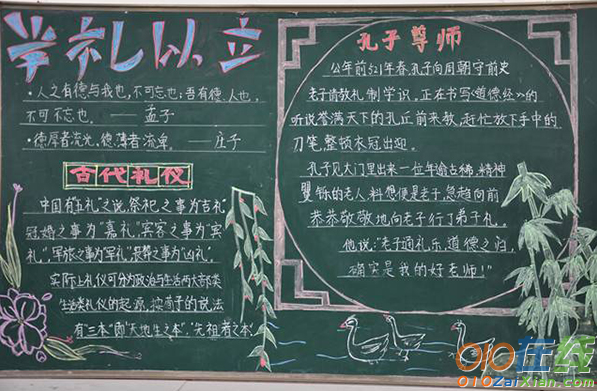 学礼以立
·人之有德与我也,不可忘也;吾有德人也,
不可不忘也。——孟子
·德厚者流光,德薄者流卑。——庄子
古代礼仪
中国有"五礼"之说,祭祀之事为吉礼
冠婚之事为"嘉礼"宾客之事为"宾
礼",军旅之事为"军礼"丧葬之事为"凶礼"。
实际上礼仪可分为政治与生活两大部类
生活类礼仪的起源,按荀子的说法
有三本"即"天地生之本","先祖者之本"
孔子尊师
公年前521年春,孔子向周朝守前史
老子请教礼制学识。正在书写《道德经》的
听说誉满天下的孔丘前来求教,赶忙放下手中的
刀笔,整顿衣冠出迎。
孔子见大门里出来一位年逾古稀、精神
矍铄的老人,料想便是老子,急趋向前
恭恭敬敬地向老子行了弟子礼。
他说:"老子通礼乐,道德之归,
确实是我的好老师!"
010在线
010zaixian.com